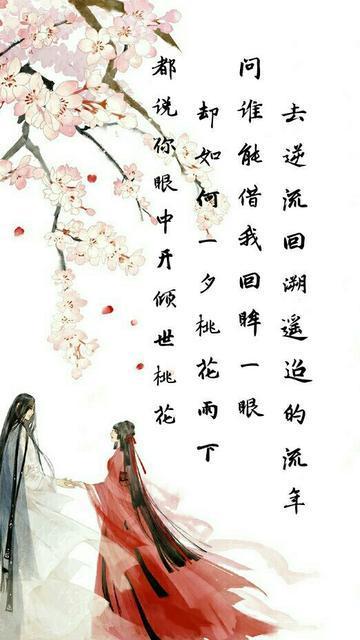 都说你眼中开倾世桃花
却如何一夕桃花雨下
问谁能借我回眸一眼
去逆流回溯遥迢的流年